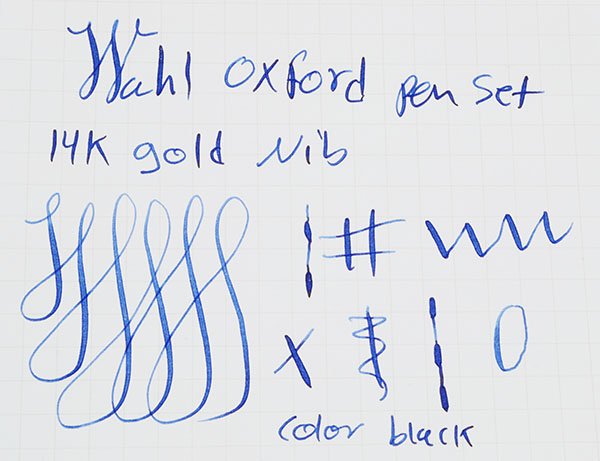 Wahl Oxford pen set
14K gold Nib
color black